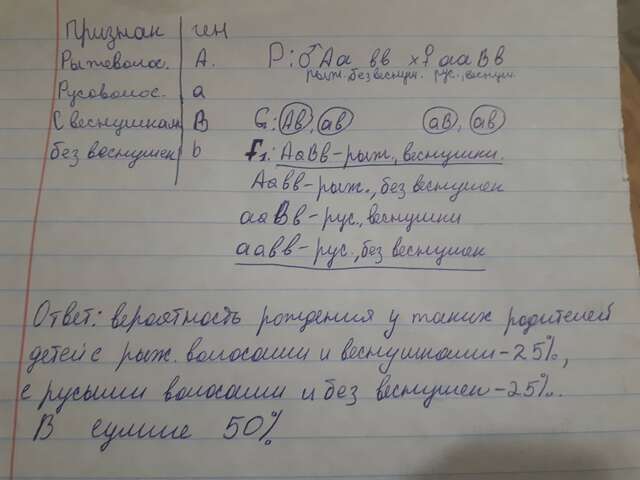 Признак | ген
Рыжеволос. | A.
Русоволос. | a
С веснушками | B
без веснушек | b
P: ♂Aa вв x ♀ aaBв
рыж. без веснуш. рус., веснуш.
G: Aв, aв aB, aв
F₁: AaBв - рыж., веснушки.
Aaвв - рыж., без веснушек
aaBв - рус., веснушки
aaвв - рус., без веснушек
Ответ: вероятность рождения у таких родителей
детей с рыж. волосами и веснушками - 25%,
с русыми волосами и без веснушек - 25%.
В сумме 50%